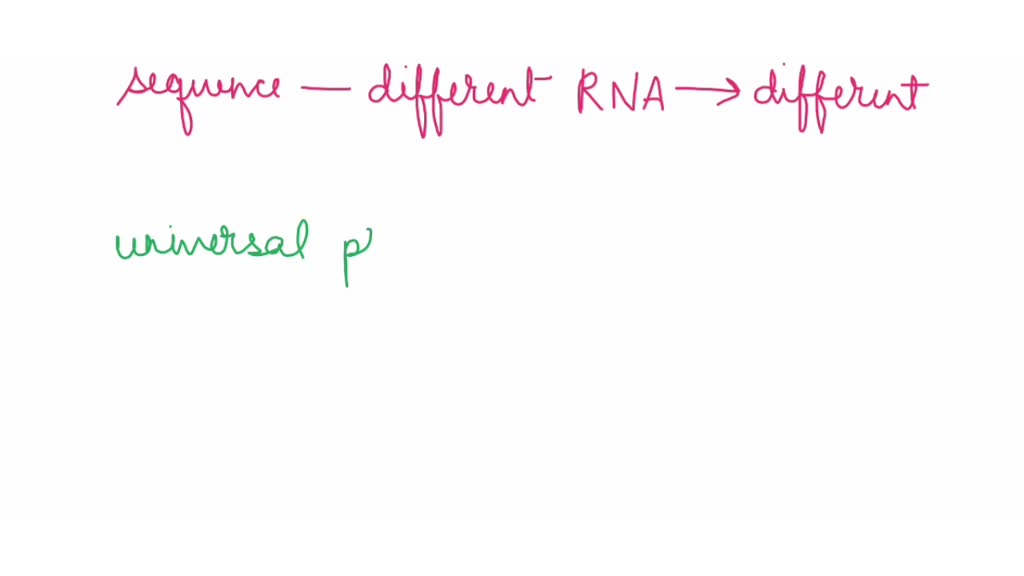 sequence — different RNA → different
universal p